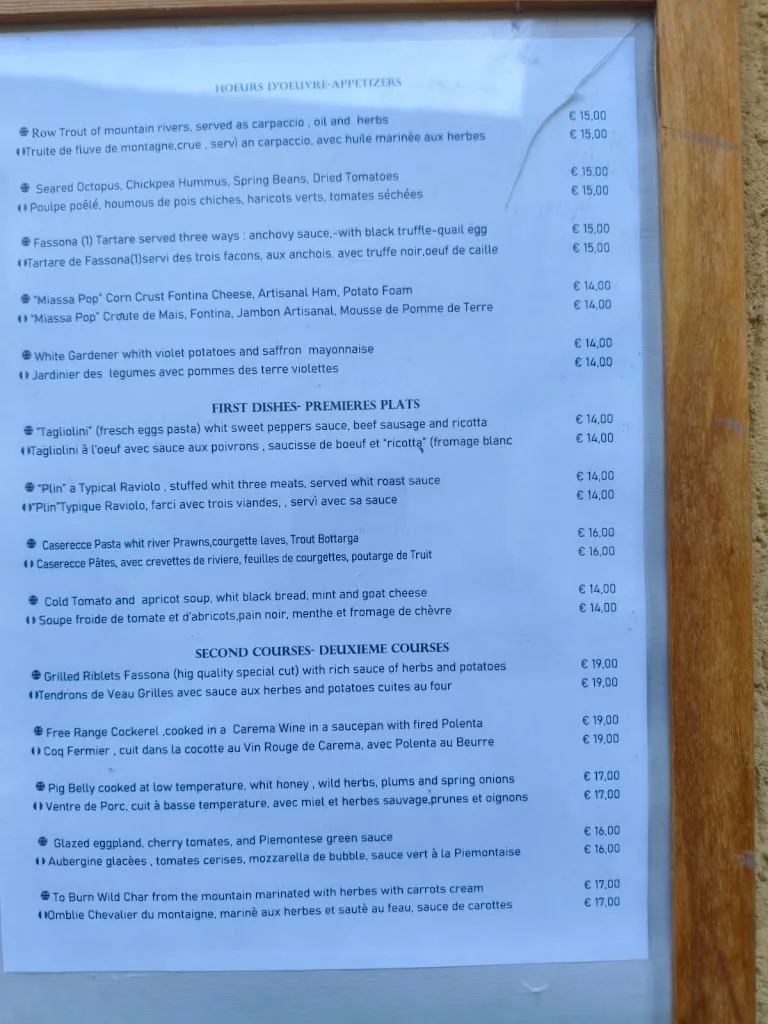 HOEURS D'OEUVRE-APPETIZERS
Row Trout of mountain rivers, served as carpaccio , oil and herbs € 15,00
Truite de fluve de montagne,crue , servì an carpaccio, avec huile marinèe aux herbes € 15,00
Seared Octopus, Chickpea Hummus, Spring Beans, Dried Tomatoes € 15,00
Poulpe poêlé, houmous de pois chiches, haricots verts, tomates séchées € 15,00
Fassona (1) Tartare served three ways : anchovy sauce,-with black truffle-quail egg € 15,00
Tartare de Fassona(1)servi des trois facons, aux anchois, avec truffe noir,oeuf de caille € 15,00
"Miassa Pop" Corn Crust Fontina Cheese, Artisanal Ham, Potato Foam € 14,00
"Miassa Pop" Croute de Mais, Fontina, Jambon Artisanal, Mousse de Pomme de Terre € 14,00
White Gardener whith violet potatoes and saffron mayonnaise € 14,00
Jardinier des legumes avec pommes des terre violettes € 14,00
FIRST DISHES- PREMIERES PLATS
"Tagliolini" (fresch eggs pasta) whit sweet peppers sauce, beef sausage and ricotta € 14,00
Tagliolini à l'oeuf avec sauce aux poivrons , saucisse de boeuf et "ricotta" (fromage blanc € 14,00
"Plin" a Typical Raviolo , stuffed whit three meats, served whit roast sauce € 14,00
"Plin"Typique Raviolo, farci avec trois viandes, , servì avec sa sauce € 14,00
Caserecce Pasta whit river Prawns,courgette laves, Trout Bottarga € 16,00
Caserecce Pâtes, avec crevettes de riviere, feuilles de courgettes, poutarge de Truit € 16,00
Cold Tomato and apricot soup, whit black bread, mint and goat cheese € 14,00
Soupe froide de tomate et d'abricots,pain noir, menthe et fromage de chèvre € 14,00
SECOND COURSES- DEUXIEME COURSES
Grilled Riblets Fassona (hig quality special cut) with rich sauce of herbs and potatoes € 19,00
Tendrons de Veau Grilles avec sauce aux herbes and potatoes cuites au four € 19,00
Free Range Cockerel ,cooked in a Carema Wine in a saucepan with fired Polenta € 19,00
Coq Fermier , cuit dans la cocotte au Vin Rouge de Carema, avec Polenta au Beurre € 19,00
Pig Belly cooked at low temperature, whit honey , wild herbs, plums and spring onions € 17,00
Ventre de Porc, cuit à basse temperature, avec miel et herbes sauvage,prunes et oignons € 17,00
Glazed eggpland, cherry tomates, and Piemontese green sauce € 16,00
Aubergine glacèes , tomates cerises, mozzarella de bubble, sauce vert à la Piemontaise € 16,00
To Burn Wild Char from the mountain marinated with herbes with carrots cream € 17,00
Omblie Chevalier du montaigne, marinè aux herbes et sautè au feau, sauce de carottes € 17,00